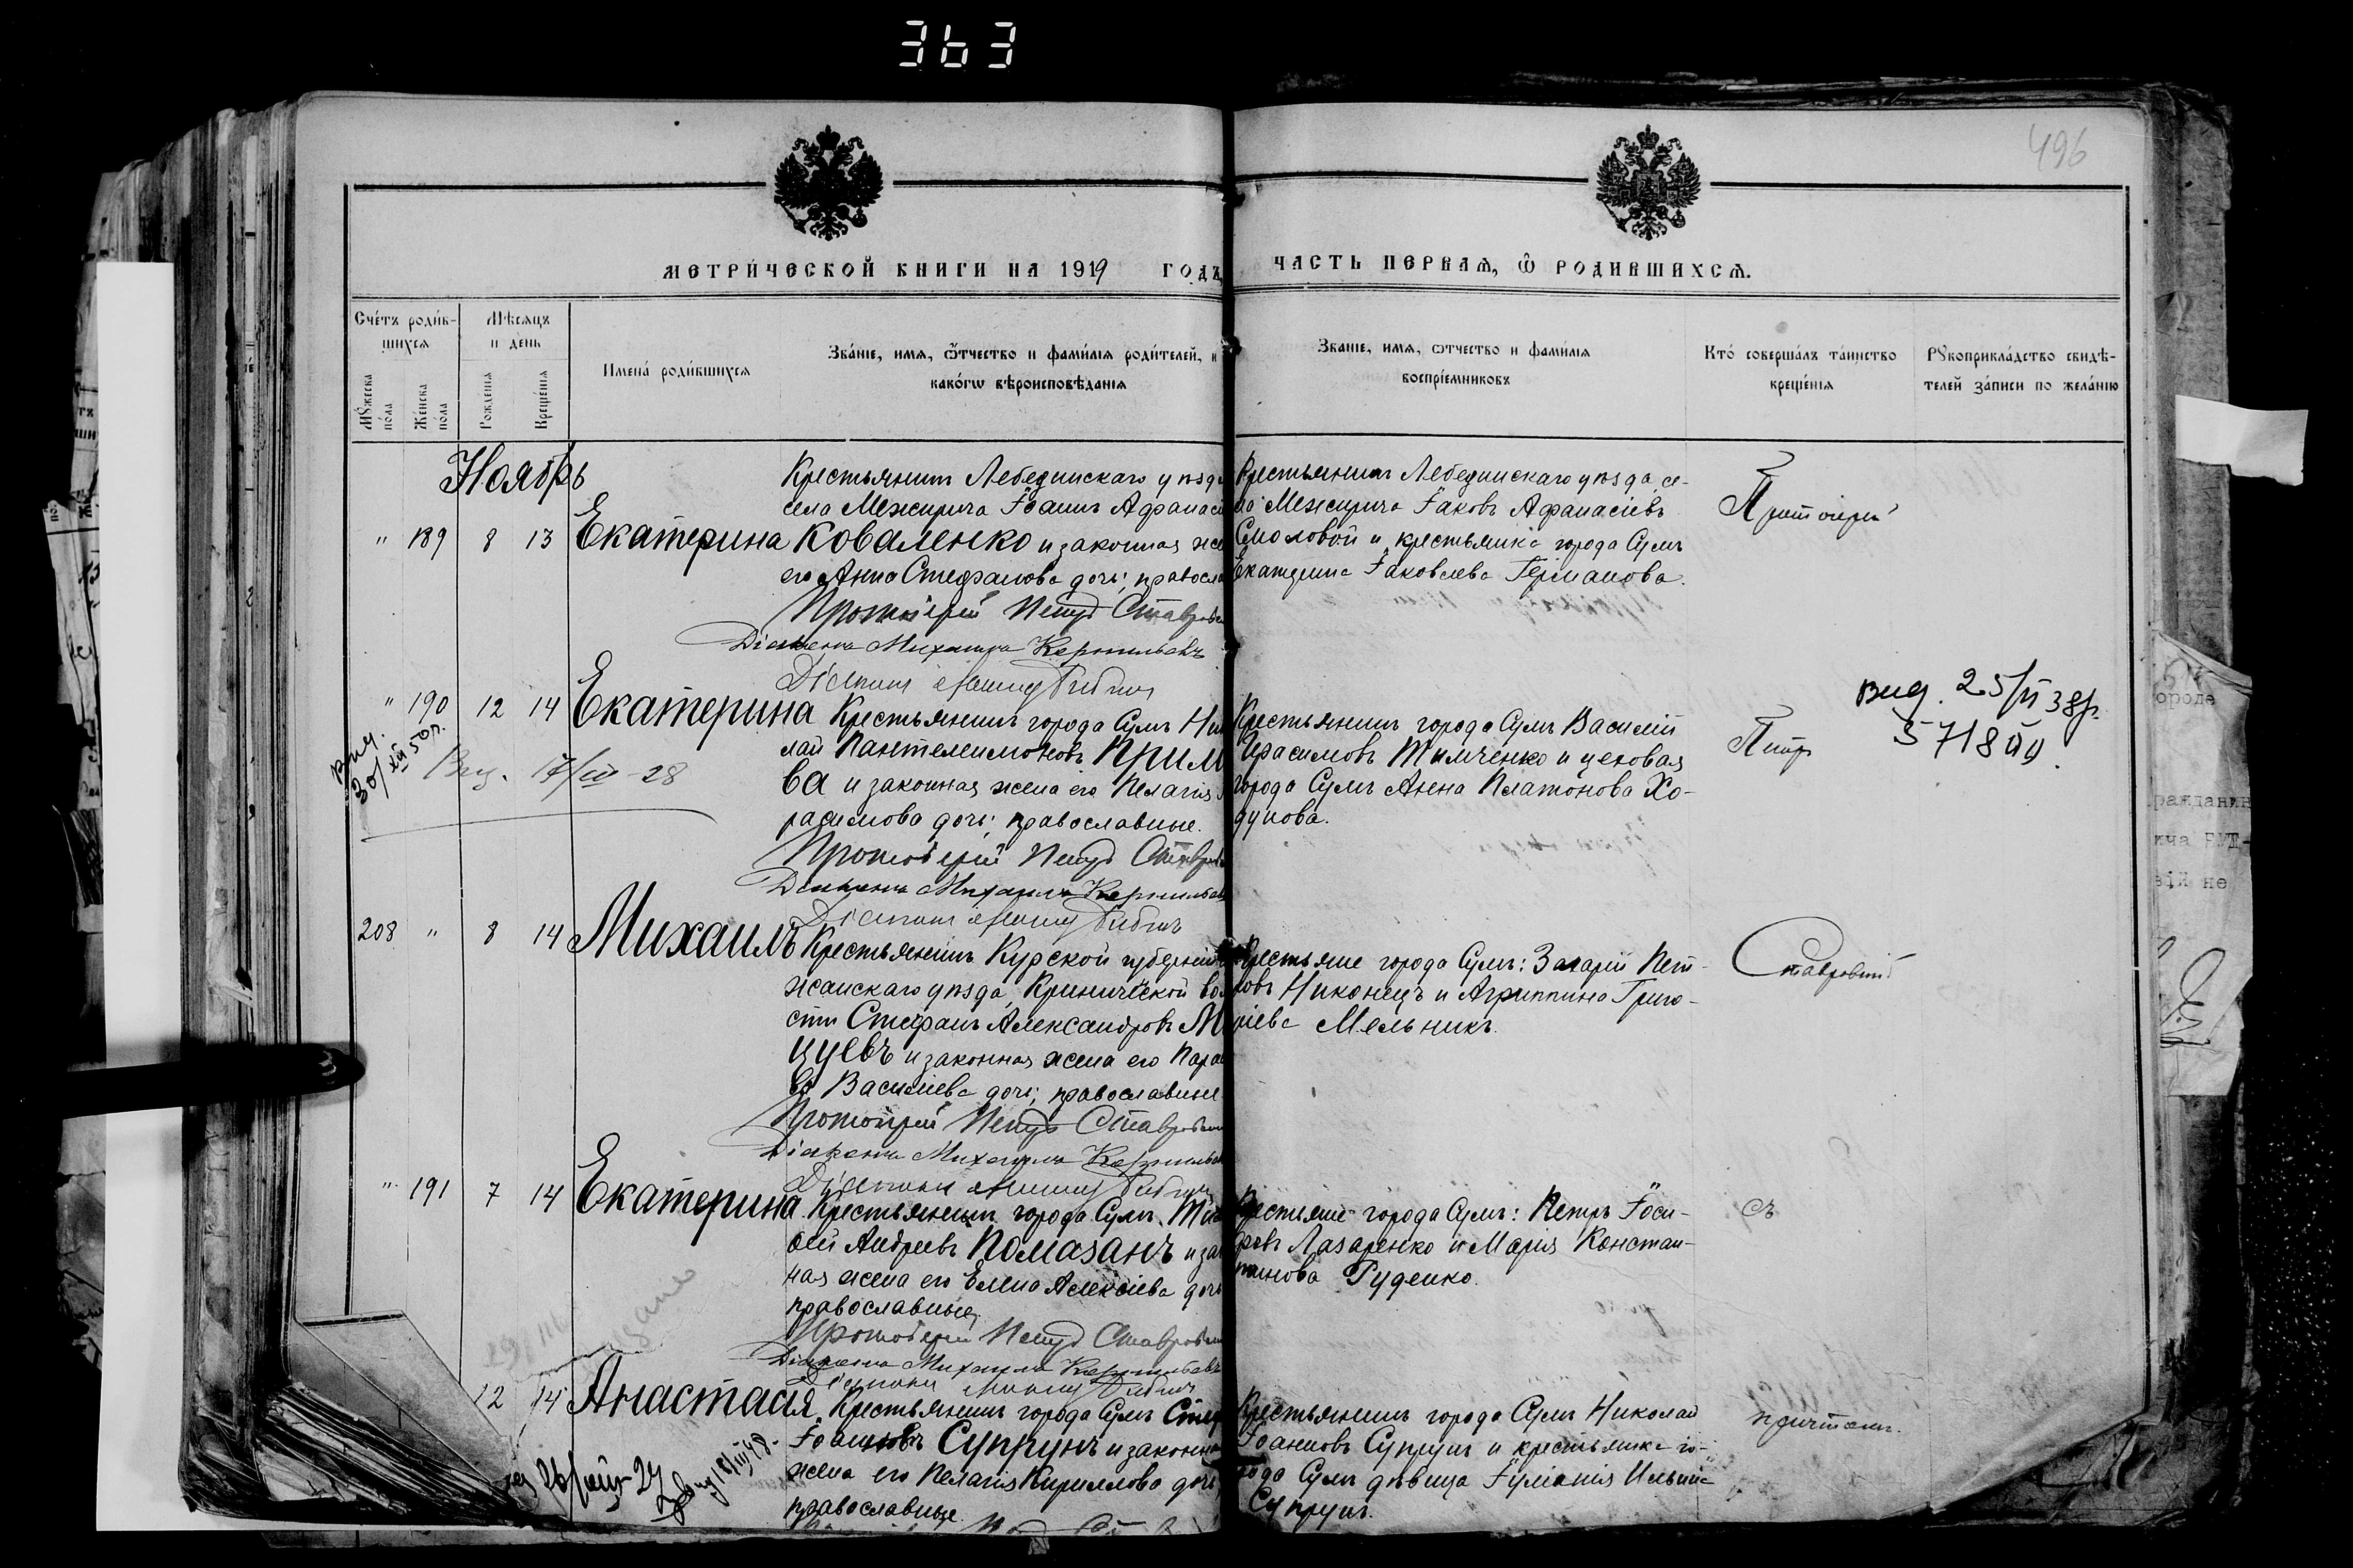 363
496
МЕТРИ́ЧЕСКОЙ КНИГИ НА 1919 ГОДЪ,
ЧАСТЬ ПЕРВАЯ, Ѡ РОДИВШИХСЯ.
Сче́тъ роди́в-
шихся
Мѣ́сяцъ
и де́нь
Имена́ роди́вшихся
Зва́ніе, имя, ѻ́тчество и фами́лія роди́телей, и
како́гѡ вѣроисповѣ́данія
Зва́ніе, имя, ѻтчество и фами́лія
воспріе́мниковъ
Кто́ соверша́лъ та́инство
креще́нія
Рꙋкоприкла́дство свидѣ́-
телей за́писи по жела́нію
Мꙋ́жеска
по́ла
Же́нска
по́ла
Рожде́нія
Креще́нія
Ноябрь
" 189 8 13 Екатерина
Крестьянинъ Лебединскаго уѣзда
села Межирича Іоаннъ Афанасі
Коваленко и законная же
его Анна Стефанова дочь; правосла
Протоіерей Петръ Ставровс
Діаконъ Михаилъ
Діаконъ
Крестьянинъ Лебединскаго уѣзда, се-
ла Межирича Іаковъ Афанасіевъ
Смоловой и крестьянка города Сумъ
Екатерина Іаковлева Германова.
Протоіерей
" 190 12 14 Екатерина
Крестьянинъ города Сумъ Ни
лай Пантелеимоновъ Прим
ва и законная жена его Пелагія
расимова дочь; православные.
Протоіерей Петръ Ставровс
Діаконъ Михаилъ
Діаконъ
Крестьянинъ города Сумъ Василій
Герасимовъ Тимченко и цеховая
города Сумъ Анна Платонова Хо-
дунова.
Петръ
Вид. 25/VI 38р.
Вид.
30/XII 50 р.
Вид. 17/III-28
208 " 8 14 Михаилъ
Крестьянинъ Курской губерніи
жанскаго уѣзда, Криничской во
сти Стефанъ Александровъ М
цуевъ и законная жена его Пара
ва Василіева дочь; православные
Протоіерей Петръ Ставровск
Діаконъ Михаилъ
Діаконъ
Крестьяне города Сумъ: Захарій Пет-
ровъ Никонецъ и Агриппина Григо-
ріева Мельникъ.
Ставровскій
" 191 7 14 Екатерина
Крестьянинъ города Сумъ Тим
ѳей Андреевъ Помазанъ и зак
ная жена его Елена Алексіева дочь
православные.
Протоіерей Петръ Ставровск
Діаконъ Михаилъ
Діаконъ
Крестьяне города Сумъ: Петръ Іоси-
фовъ Лазаренко и Марія Констан-
тинова Руденко.
съ
12 14 Анастасія
Крестьянинъ города Сумъ Стеф
Іоанновъ Супрунъ и законна
жена его Пелагія Кириллова дочь
православные.
Крестьянинъ города Сумъ Николай
Іоанновъ Супрунъ и крестьянка го-
рода Сумъ дѣвица Іуліанія Ильина
Супрунъ.
причтомъ.